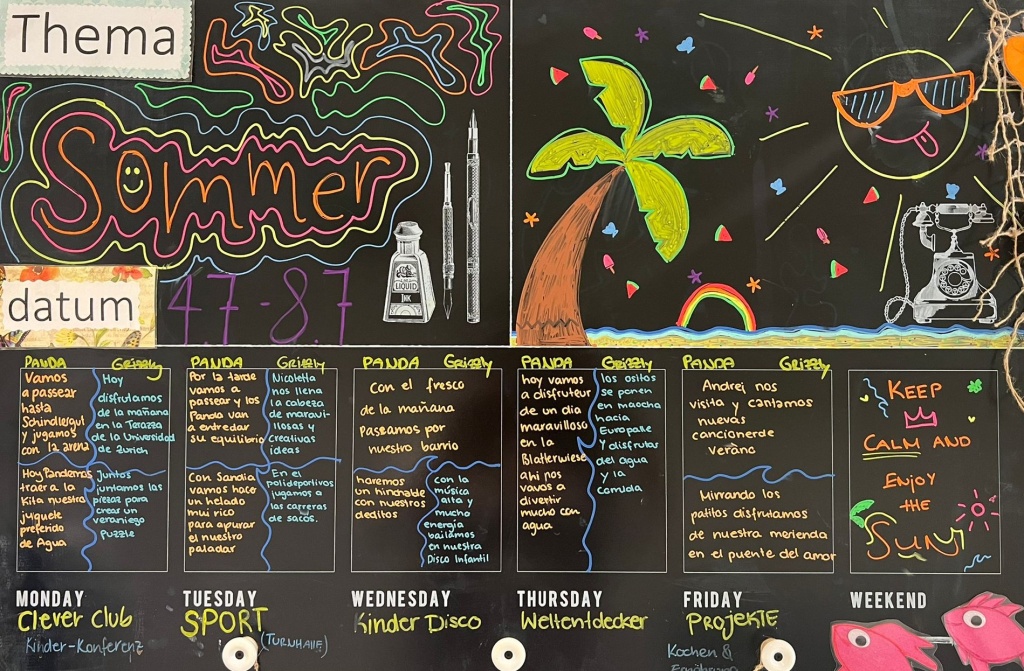 Thema
Sommer
LIQUID
INK
datum
4.7-8.7
PANDA
Grizzly
Vamos
a passear
hasta
Schindlergut
y jugamos
con la arena
Hoy
disfrutamos
de la mañana
en la Terazza
de la Universidad
de Zurich
Hoy Pandemos
traer a la
Kita nuestro
juguete
preferido
de Agua
Juntos
juntamos las
piezas para
crear un
veraniego
Puzzle
MONDAY
Clever Club
Kinder-Konferenz
PANDA
Grizzly
Por la tarde
vamos a
passear y los
Panda van
a entredar
su equilibrio
Nicoletta
nos llena
la cabeza
de maravi-
llosas y
creativas
ideas
Con Sandia
vamos hace
un helado
mui rico
para apurar
el nuestro
paladar
En el
polideportivos
jugamos a
las carreras
de sacos.
TUESDAY
SPORT
(TURNHALLE)
PANDA
Grizzly
Con el fresco
de la mañana
Paseamos por
nuestro barrio
haremos
un hinchable
con nuestros
deditos
con la
música
alta y
mucho
energia
bailamos
en nuestra
Disco Infantil
WEDNESDAY
Kinder Disco
PANDA
Grizzly
hoy vamos
a disfruteur
de un dia
maravilloso
en la
Blatterwiese
ahi nos
vamos a
divertir
mucho con
agua
los ositos
se ponen
en maocha
hacia
Europalle
y disfrutar
del agua
y la
comida
THURSDAY
Weltentdecker
PANDA
Grizzly
Andrei nos
visita y cantamos
nuevas
cancionerde
verano
Mirrando los
patitos disfrutamos
de nuestra merienda
en el puente del amor
FRIDAY
PROJEKTE
Kochen &
Ernährung
KEEP
CALM AND
ENJOY
THE
SUN!
WEEKEND